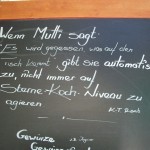 Wenn Mutti sagt:
"Es wird gegessen, was auf den
Tisch kommt, gibt sie automatis
zu, nicht immer auf
Sterne-Koch-Niveau zu
agieren
Gewürze